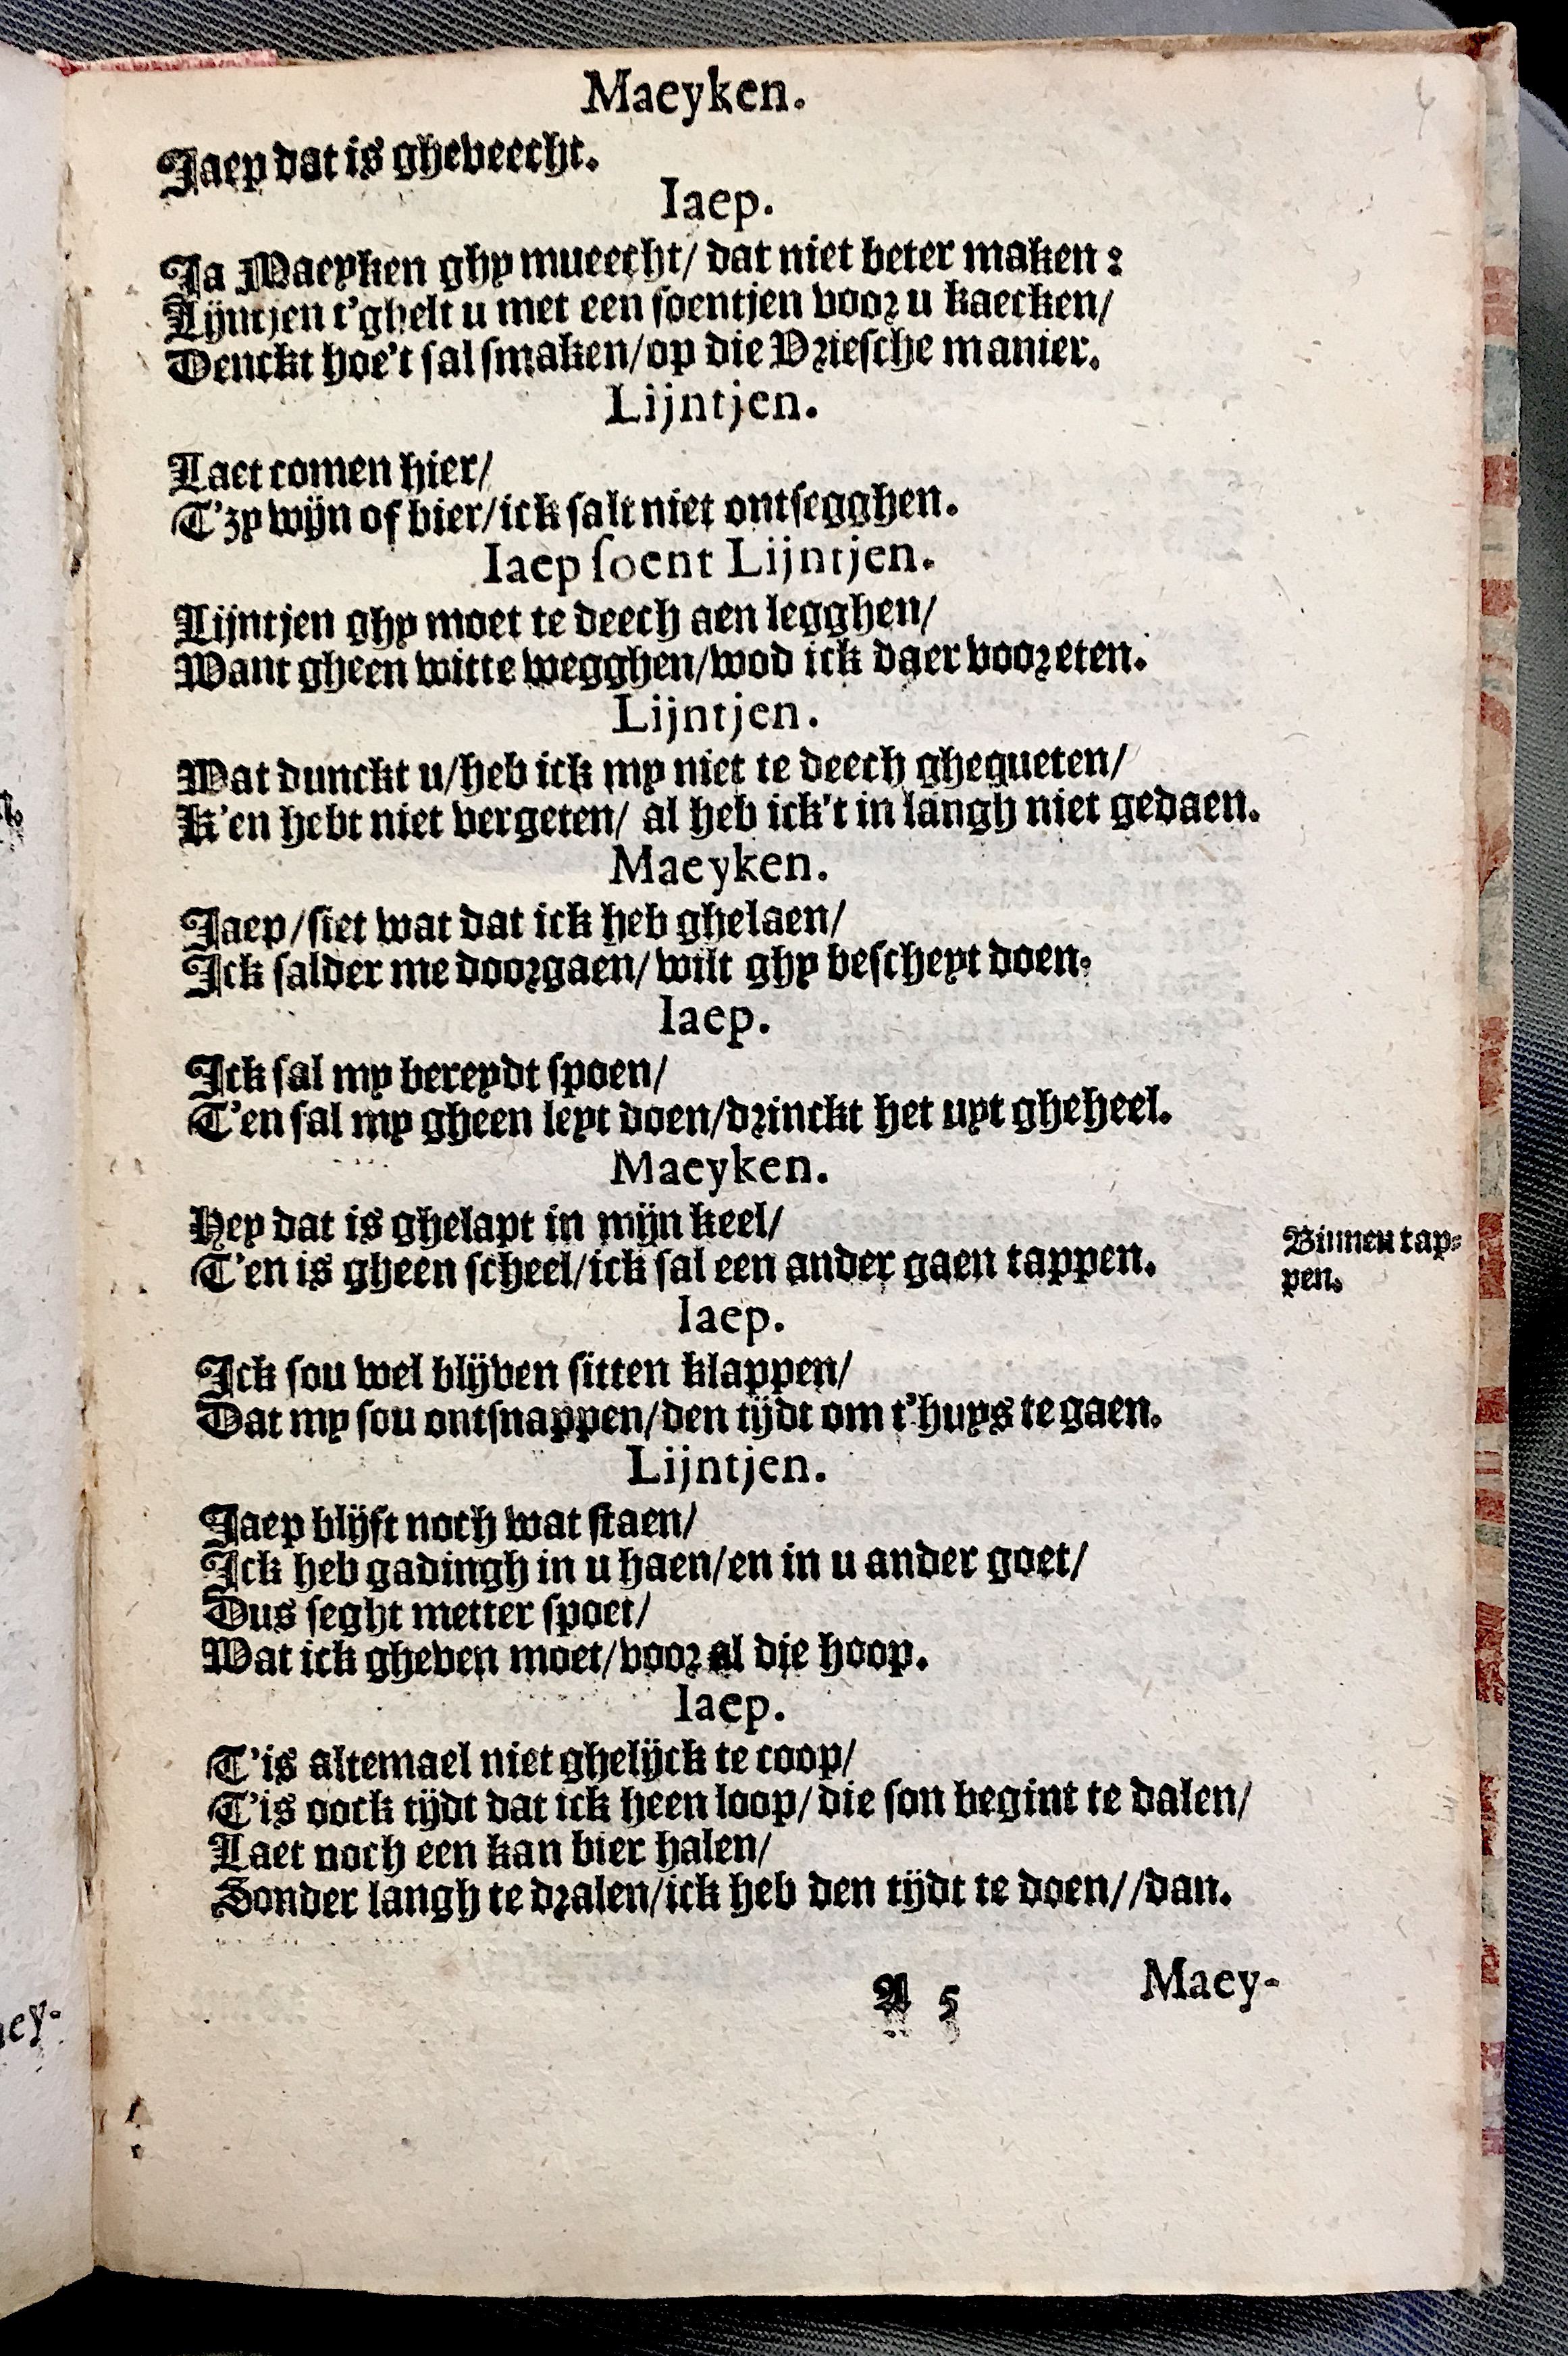 Maeyken.
Jaep dat is gheveecht.
Iaep.
Ja Maeyken ghy mueecht/ dat niet beter maken?
Lijntjen t'ghelt u met een soentjen voor u kaecken/
Denckt hoe't sal smaken/op die Vriesche manier.
Lijntjen.
Laet comen hier/
T'zy wijn of bier/ick salt niet ontsegghen.
Iaep soent Lijntjen.
Lijntjen ghy moet te deech aen legghen/
Want gheen witte wegghen/wod ick daer voor eten.
Lijntjen.
Wat dunckt u/heb ick my niet te deech ghequeten/
K'en hebt niet vergeten/ al heb ick't in langh niet gedaen.
Maeyken.
Jaep/siet wat dat ick heb ghelaen/
Ick salder me doorgaen/wilt ghy bescheyt doen.
Iaep.
Ick sal my bereydt spoen/
T'en sal my gheen leyt doen/drinckt het uyt gheheel.
Maeyken.
Hey dat is ghelapt in mijn keel/
T'en is gheen scheel/ick sal een ander gaen tappen.
Binnen tap-
pen.
Iaep.
Ick sou wel blijven sitten klappen/
Dat my sou ontsnappen/den tijdt om t'huys te gaen.
Lijntjen.
Jaep blijft noch wat staen/
Ick heb gadingh in u haen/en in u ander goet/
Dus seght metter spoet/
Wat ick gheven moet/voor al die hoop.
Iaep.
T'is altemael niet ghelijck te coop/
T'is oock tijdt dat ick heen loop/die son begint te dalen/
Laet noch een kan bier halen/
Sonder langh te dralen/ick heb den tijdt te doen//dan.
A 5
Maey-